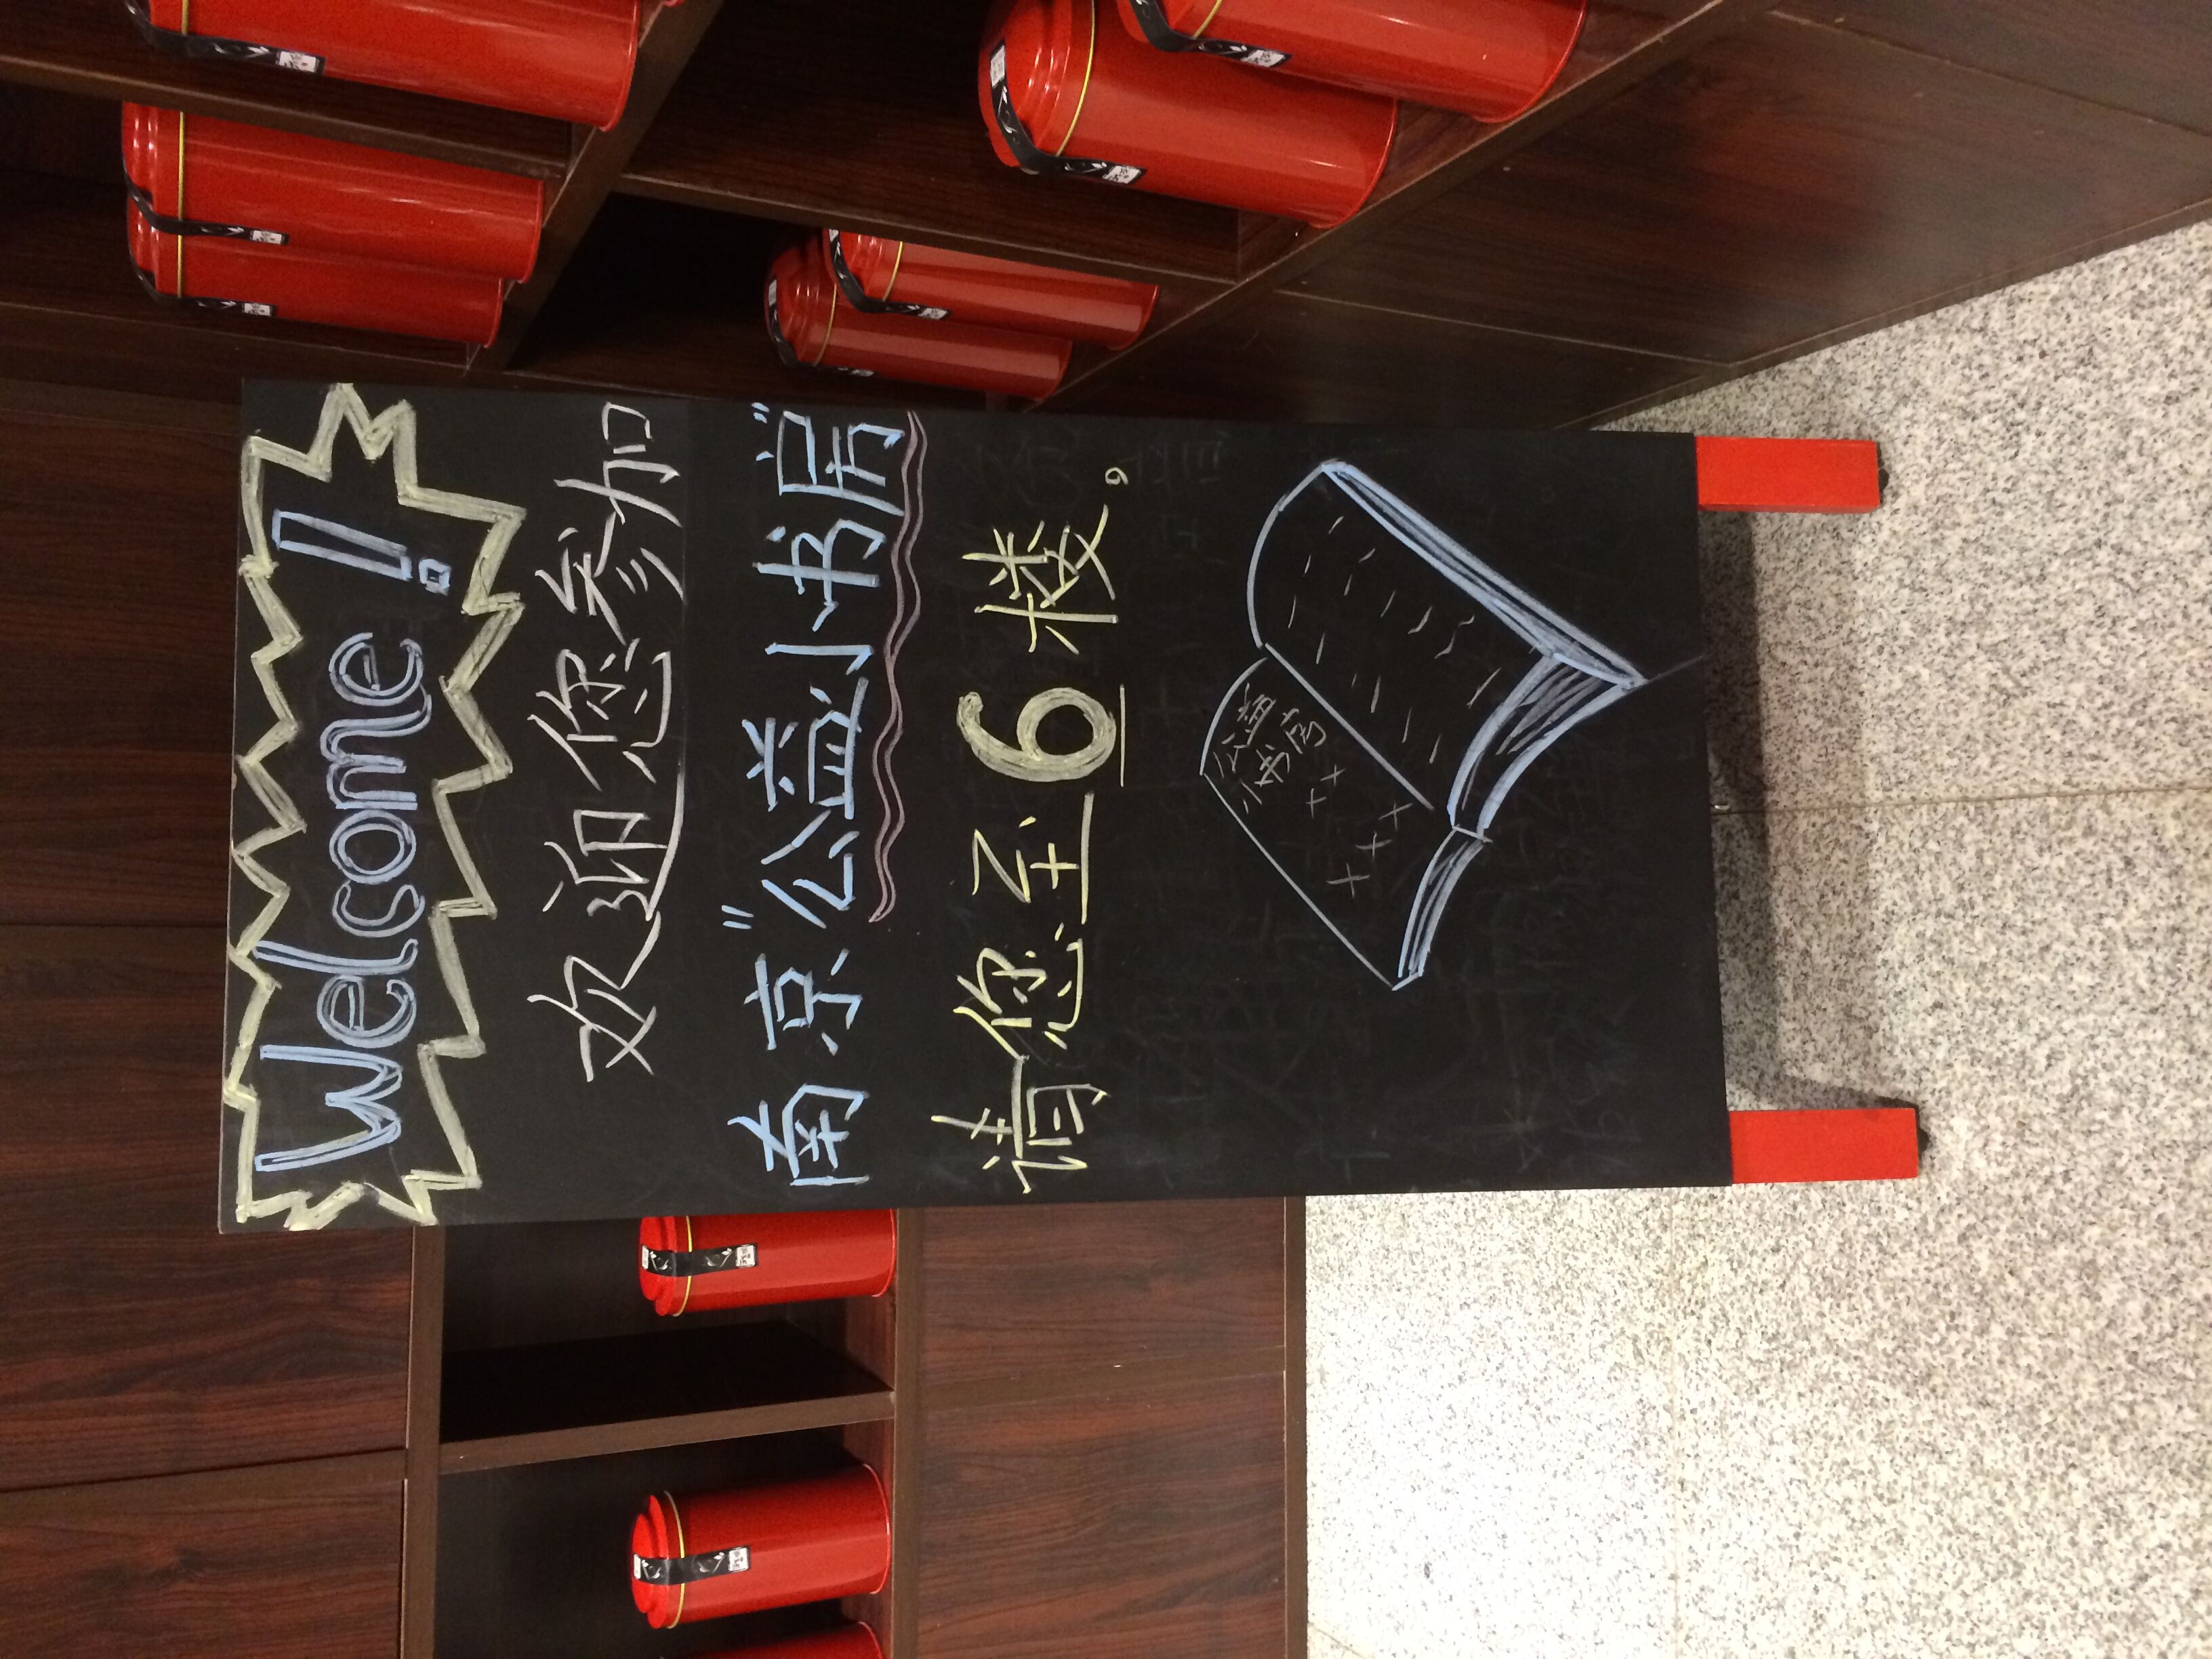 Welcome!
欢迎您参加
南京“公益小书房”
请您至6楼。
公益
小书房